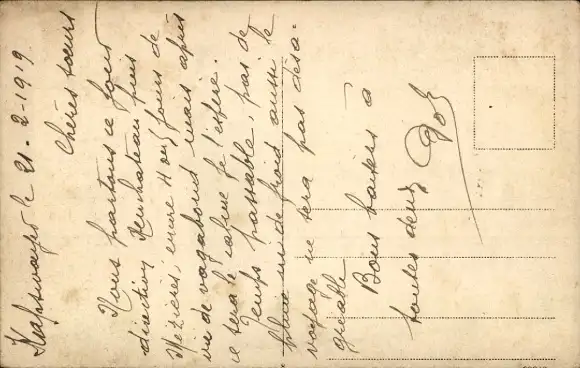 le 21-2-1919
Chères sœurs
Nous partons ce jour
direction Neuchateau puis
Mézières, encore 4 ou 5 jours de
vie de vagabond mais après
ce sera le calme je l'espère.
Temps passable, pas de
pluie ni de froid aussi le
voyage ne sera pas désa-
gréable
Bons baisers à
toutes deux